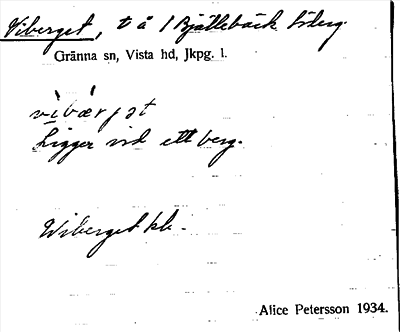 Viberget, t å 1 Bjällebäck Söderg.
Gränna sn, Vista hd, Jkpg. l.
vibærjət
Ligger vid ett berg.
Wiberget kb.
Alice Petersson 1934.